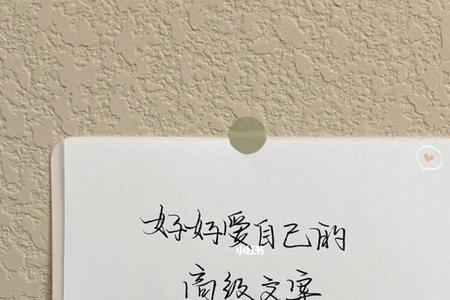 好好爱自己的
小红书
高级文案